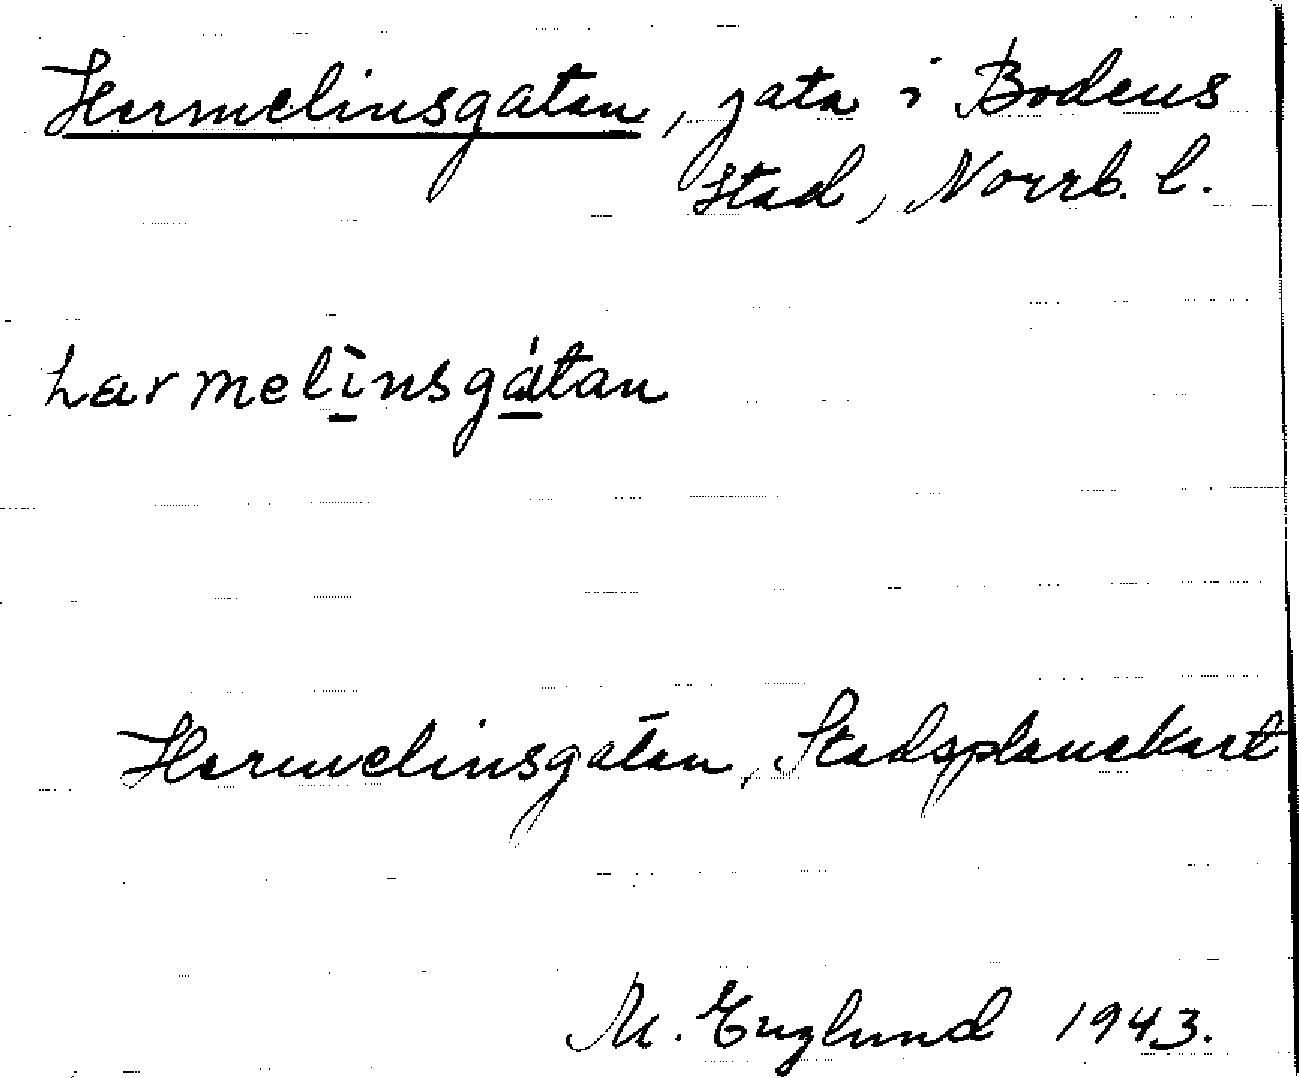 Hermelinsgatan, gata i Bodens
stad, Norrb. l.
härmelìnsgátan
Hermelinsgatan, Stadsplanekart
M. Englund 1943.